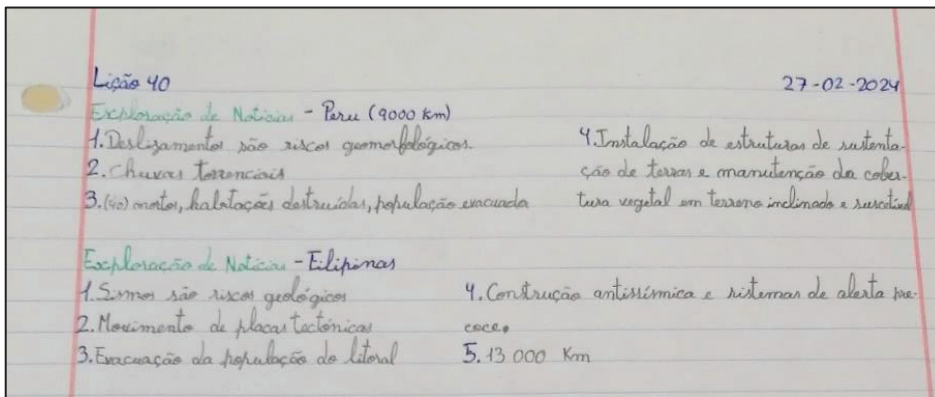 Lição 40
27-02-2024
Exploração de Notícias - Peru (9000 km)
1. Deslizamentos são riscos geomorfológicos.
2. Chuvas torrenciais
3. (40) mortos, habitações destruídas, população evacuada
4. Instalação de estruturas de sustenta-
ção de terras e manutenção da cober-
tura vegetal em terreno inclinado e suscetível
Exploração de Notícias - Filipinas
1. Sismos são riscos geológicos
2. Movimento de placas tectónicas
3. Evacuação da população do litoral
4. Construção antissísmica e sistemas de alerta pre-
coce.
5. 13 000 Km